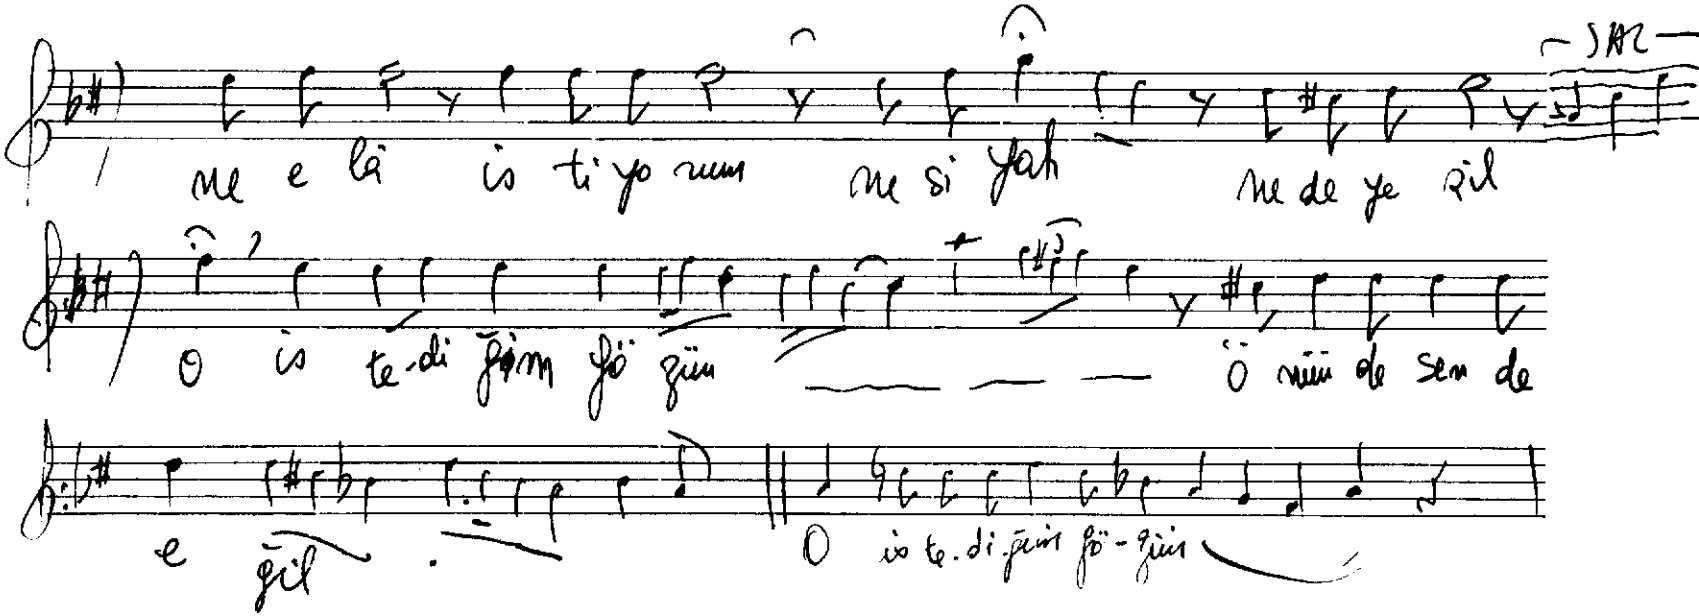 SAZ
ne e lâ is ti yo rum ne si yah ne de ye şil
O is te-di ğim gö zün Ö nün de sen de
e ğil O is te.di.ğim gö-zün